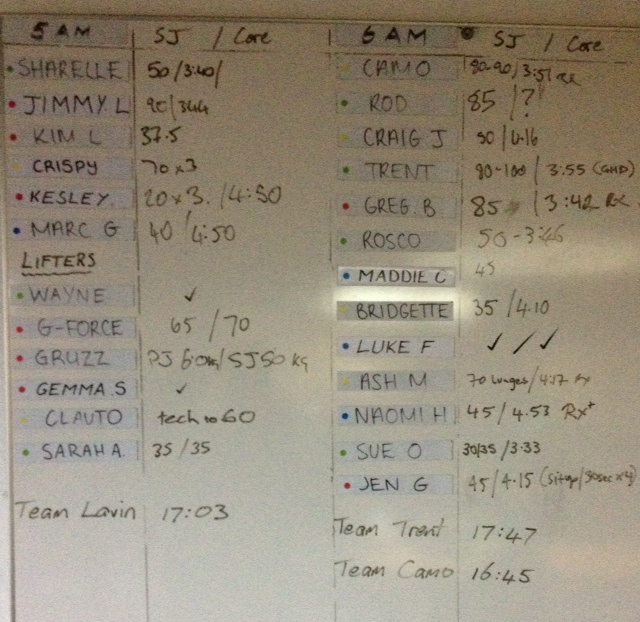 5 AM SJ / Core
SHARELLE 50/3:40/
JIMMY L 90/3:44
KIM L 37.5
CRISPY 70 x 3
KESLEY. 20 x 3. /4:50
MARC G 40 /4:50
LIFTERS
WAYNE ✓
G-FORCE 65 / 70
GRUZZ PJ 60kg/SJ 50 kg
GEMMA.S ✓
CLAUTO tech to 60
SARAH A. 35 /35
Team Lavin 17:03
6 AM SJ / Core
CAMO
ROD 85 /?
CRAIG J 50 /4.16
TRENT 90-100 / 3:55 (GHD)
GREG.B 85 / 3:42 Rx
ROSCO 50-3:46
MADDIE C 45
BRIDGETTE 35 /4.10
LUKE F ✓ / ✓ ✓
ASH M 70 lunges/4:17 Rx
NAOMI H 45 / 4.53 Rx+
SUE O 30/35 /3.33
JEN G 45/4.15 (situp/50sec x4)
Team Trent 17:47
Team Camo 16:45